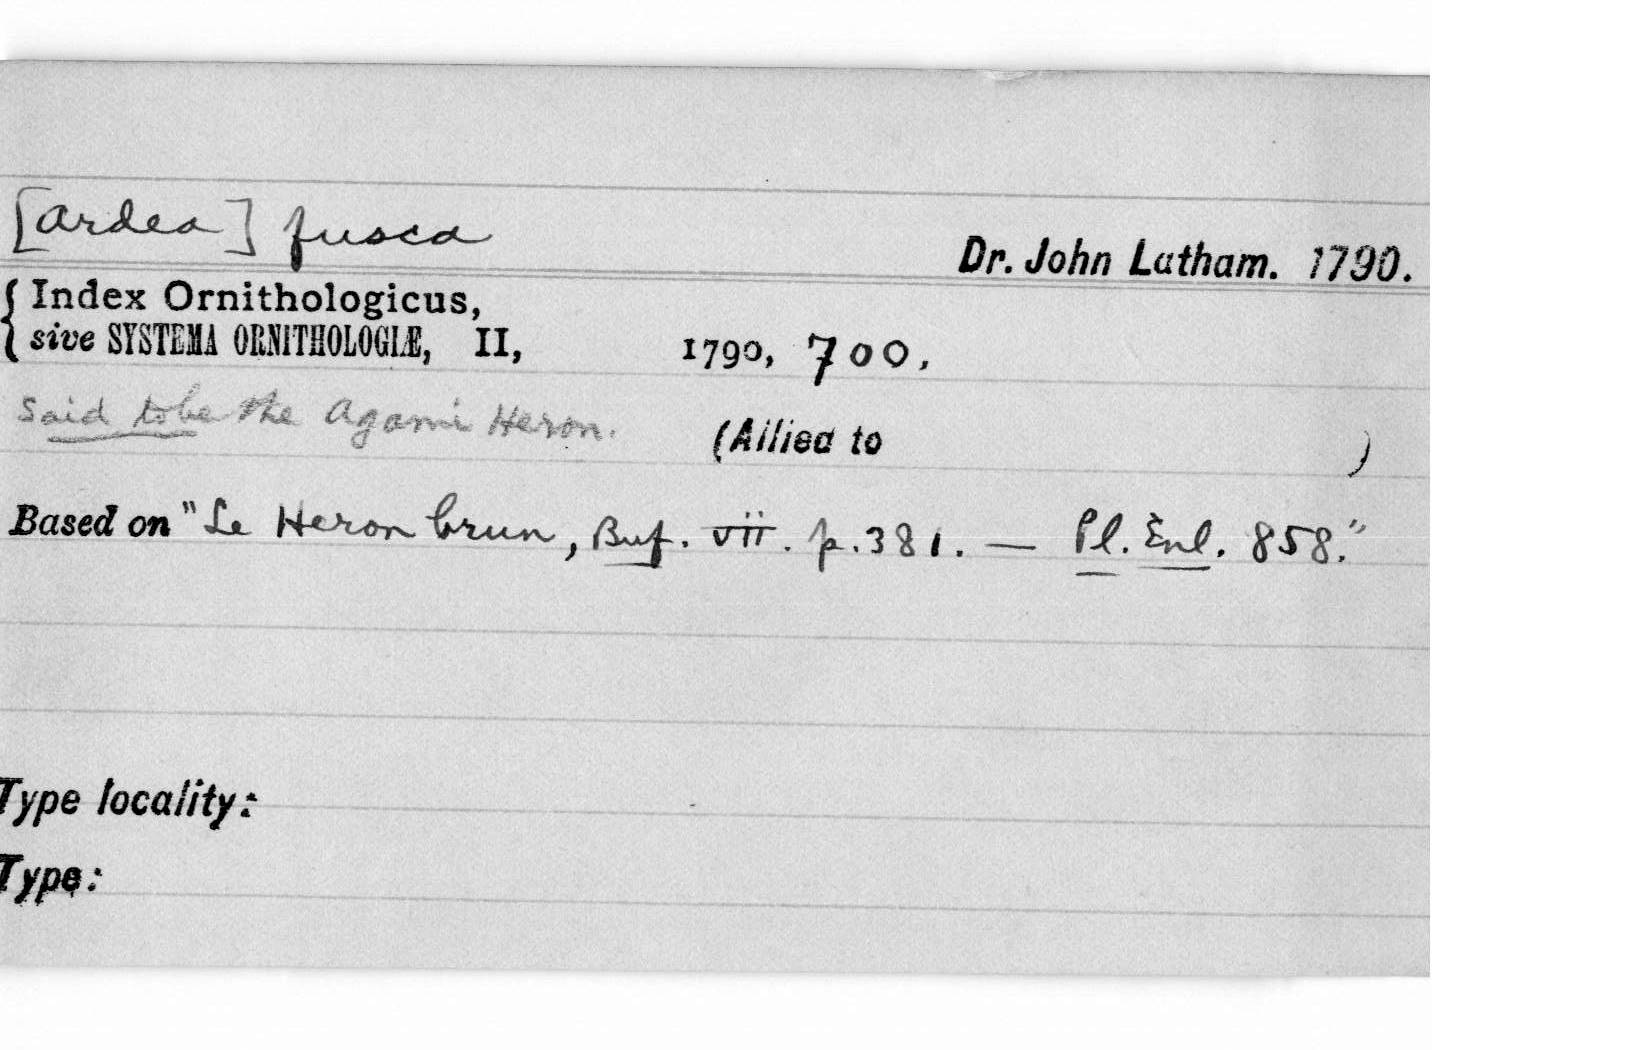 [Ardea] fusca
Dr. John Latham. 1790.
{ Index Ornithologicus,
sive SYSTEMA ORNITHOLOGIÆ, II, 1790, 700.
Said to be the Agami Heron. (Allied to )
Based on "Le Heron brun, Buf. vii. p. 381. — Pl. Enl. 858."
Type locality:
Type: